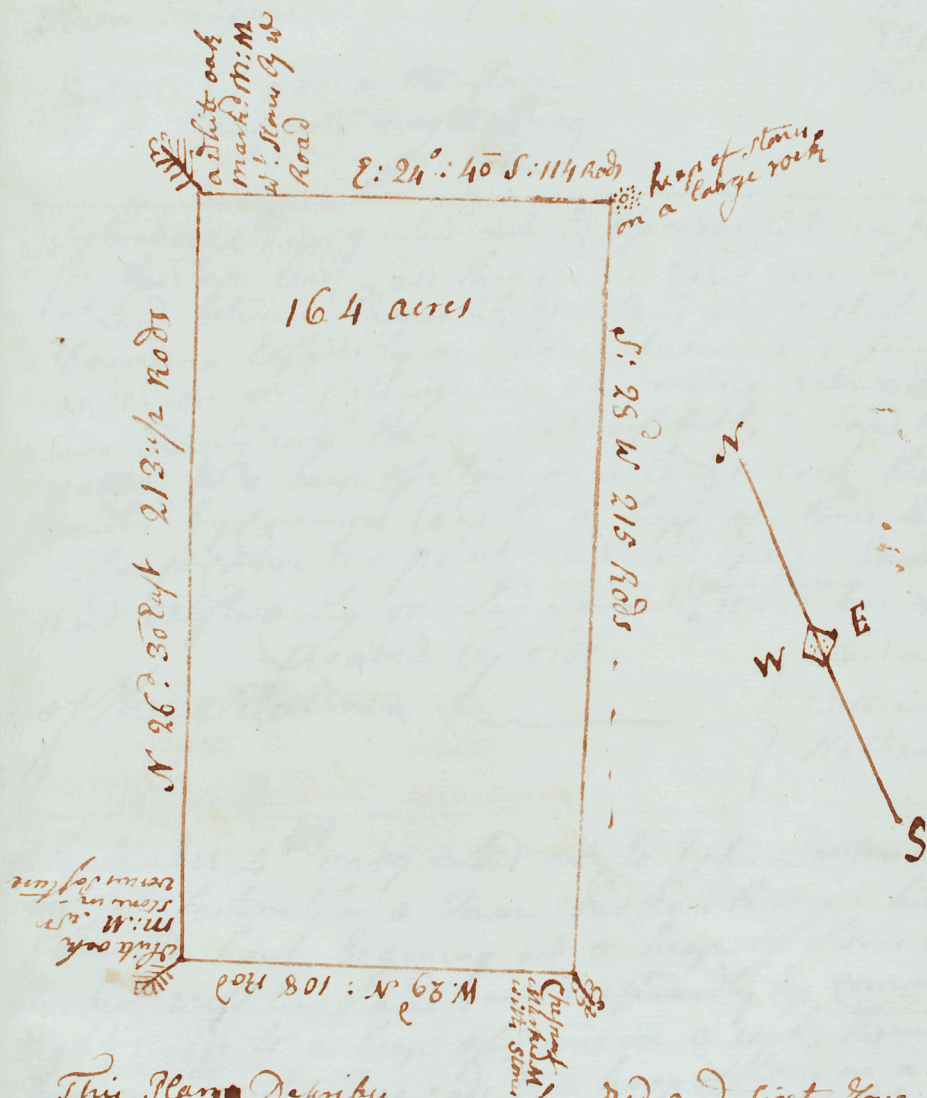 a white oak
markd M:M
wt. Stones by ye
Road
E: 24°: 40 S: 114 Rods
heap of stones
on a large rock
164 acres
N 26d: 30 East 213:1/2 Rods
S: 28d W 215 Rods
N
E
W
S
White oak
M:M. wt
stones in
pasture
W: 29d N: 108 Rod
Chesnut
Marked M
with Stones
This Plan Describes